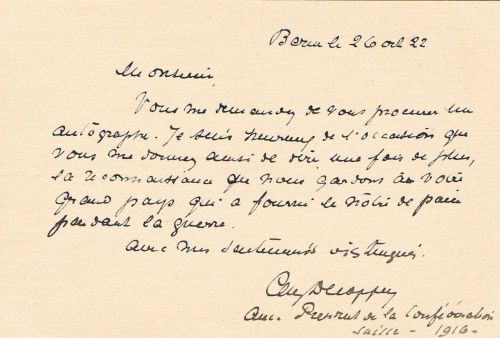 Berne le 26 oct 22
Monsieur,
Vous me demandez de vous procurer un
autographe. Je suis heureux de l'occasion que
vous me donnez ainsi de dire une fois de plus,
la reconnaissance que nous gardons à votre
grand pays qui a fourni le nôtre de pain
pendant la guerre.
avec mes sentiments distingués.
Cam Decoppet
anc. Président de la Confédération
suisse - 1916 -